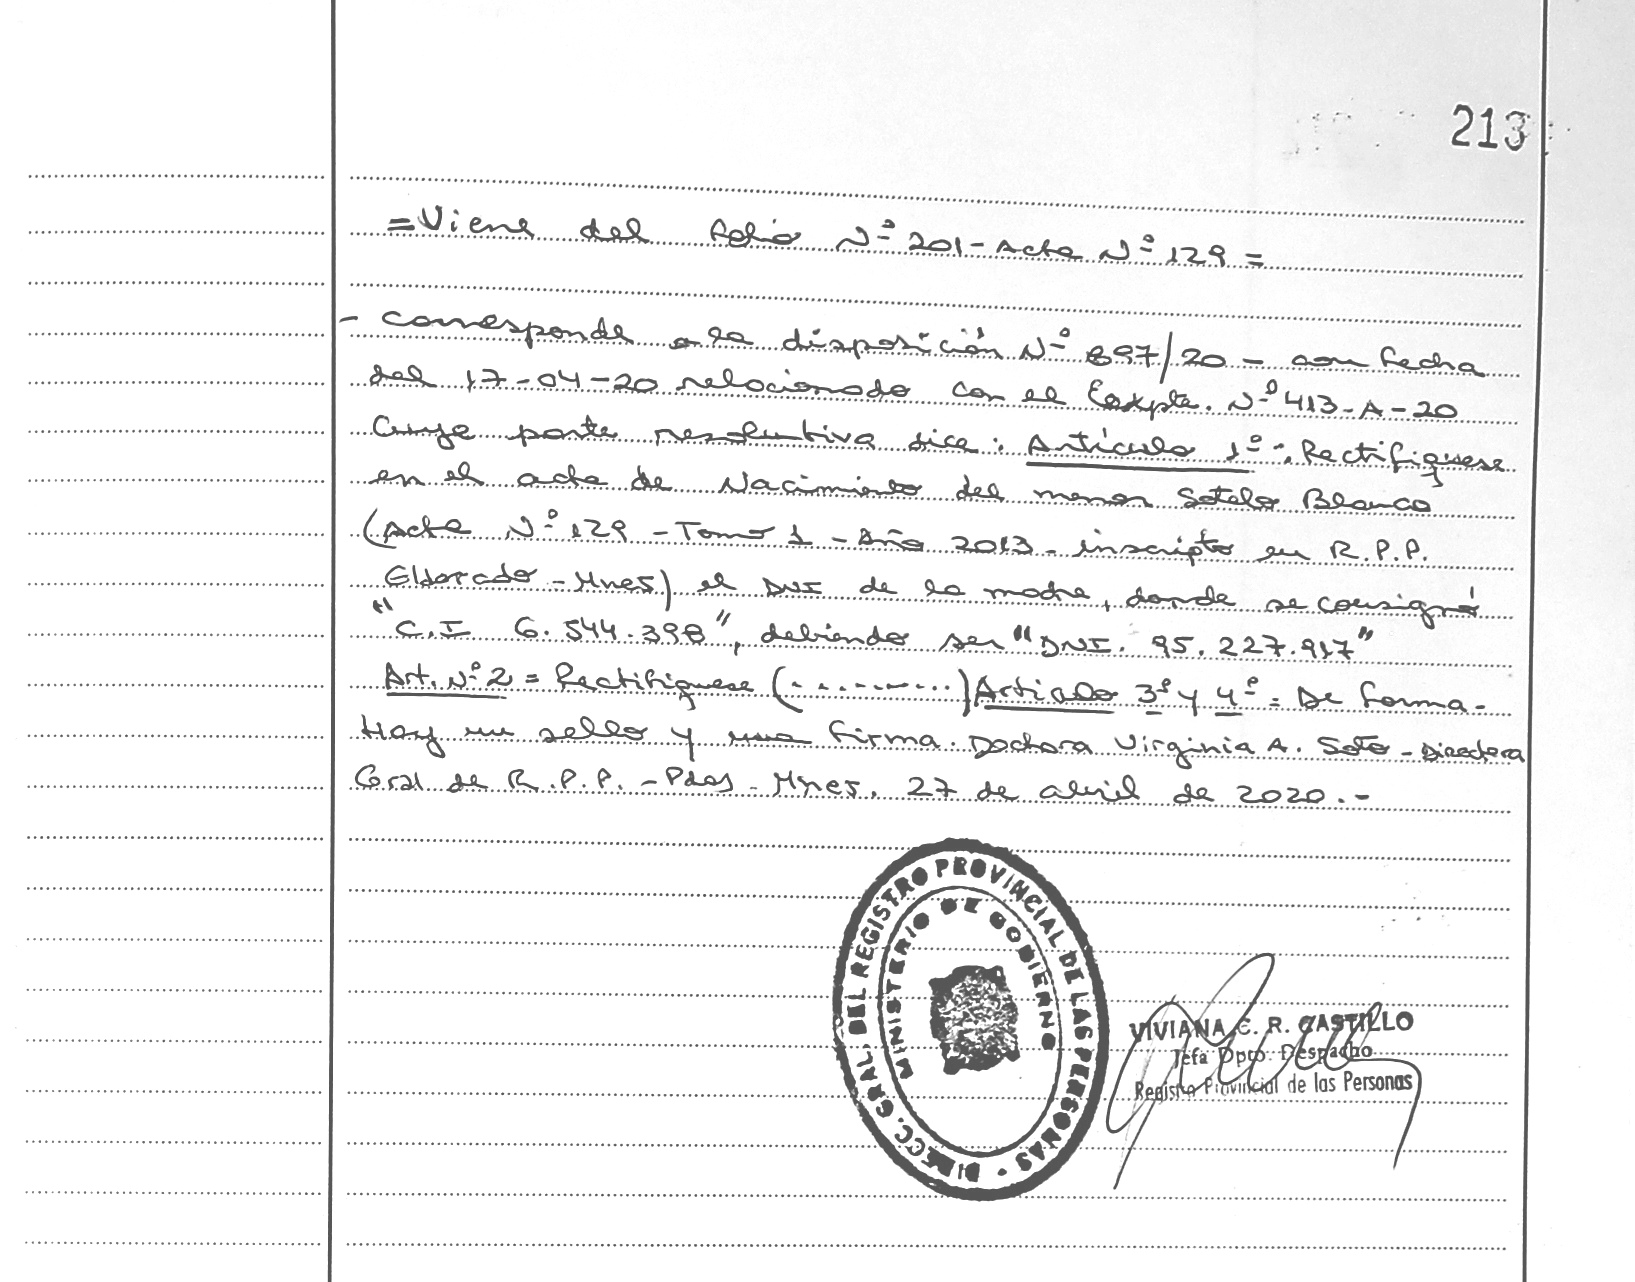 213
=Viene del folio Nº 201-Acta Nº 129=
- Corresponde a la disposición Nº 897/20 - con fecha
del 17-04-20 relacionado con el Expte. Nº 413-A-20
Cuya parte resolutiva dice: Artículo 1º: Rectifíquese
en el acta de Nacimiento del menor Sotelo Blanco
(Acta Nº 129 - Tomo 1 - Año 2013 - inscripto en R.P.P.
Eldorado - Mnes) el DNI de la madre, donde se consignó
"C.I 6.544.398", debiendo ser "DNI. 95.227.917"
Art. Nº 2 = Rectifíquese (..........) Artículo 3º y 4º = De forma.
Hay un sello y una firma. Doctora Virginia A. Soto - Directora
Gral de R.P.P. - Pdas - Mnes. 27 de abril de 2020.-
DIRECC. GRAL. DEL REGISTRO PROVINCIAL DE LAS PERSONAS -
MINISTERIO DE GOBIERNO
VIVIANA C. R. CASTILLO
Jefa Dpto. Despacho
Registro Provincial de las Personas